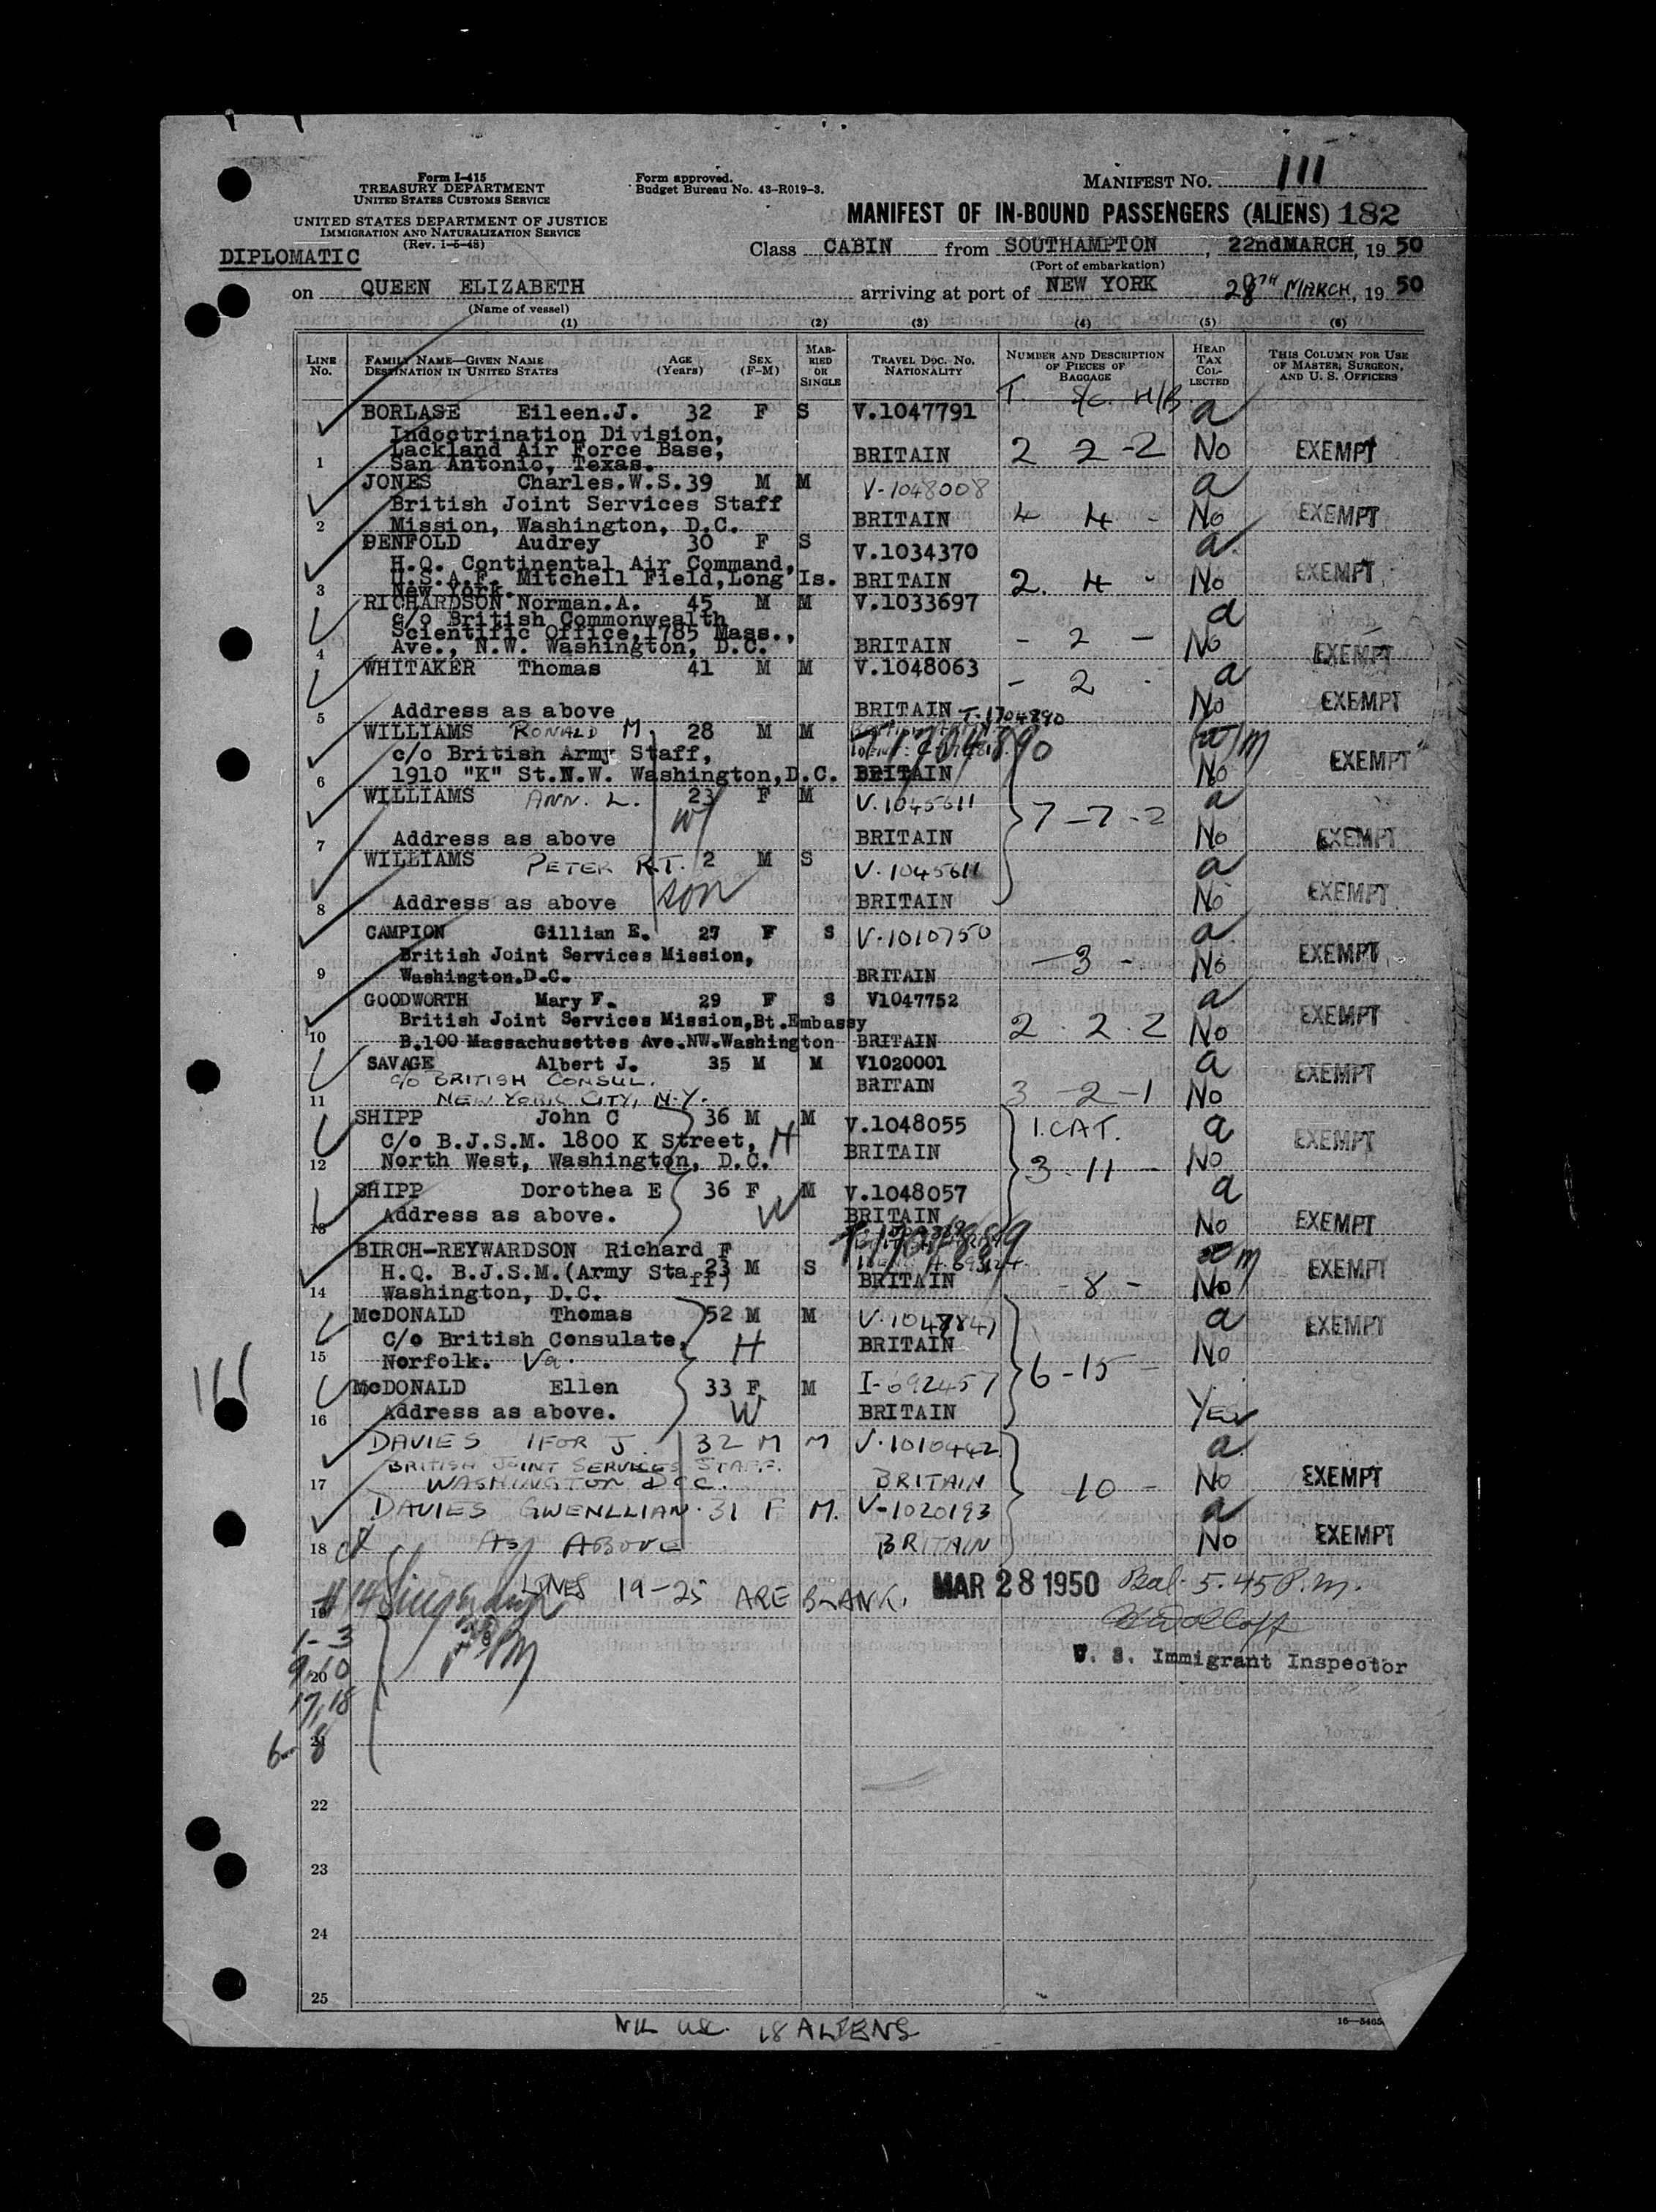 Form I-415
TREASURY DEPARTMENT
UNITED STATES CUSTOMS SERVICE
UNITED STATES DEPARTMENT OF JUSTICE
IMMIGRATION AND NATURALIZATION SERVICE
(Rev. 1-5-48)
Form approved.
Budget Bureau No. 43-R019-3.
MANIFEST NO. 111
MANIFEST OF IN-BOUND PASSENGERS (ALIENS) 182
DIPLOMATIC
Class CABIN from SOUTHAMPTON, 22nd MARCH, 1950
(Port of embarkation)
on QUEEN ELIZABETH arriving at port of NEW YORK 28TH MARCH, 1950
(Name of vessel)
(1) (2) (3) (4) (5) (6)
LINE No. FAMILY NAME—GIVEN NAME DESTINATION IN UNITED STATES AGE (Years) SEX (F-M) MARRIED OR SINGLE TRAVEL DOC. NO. NATIONALITY NUMBER AND DESCRIPTION OF PIECES OF BAGGAGE HEAD TAX COLLECTED THIS COLUMN FOR USE OF MASTER, SURGEON, AND U. S. OFFICERS
T. S/C. H/B.
BORLASE Eileen.J. 32 F S V.1047791 a
Indoctrination Division,
Lackland Air Force Base,
1 San Antonio, Texas. BRITAIN 2 2 -2 No EXEMPT
JONES Charles.W.S. 39 M M V-1048008 a
British Joint Services Staff
2 Mission, Washington, D.C. BRITAIN 4 4 - No EXEMPT
DENFOLD Audrey 30 F S V.1034370 a
H.Q. Continental Air Command,
U.S.A.F. Mitchell Field, Long Is. BRITAIN 2. 4 - No EXEMPT
3 New York.
RICHARDSON Norman.A. 45 M M V.1033697 a
c/o British Commonwealth
Scientific Office, 1785 Mass.,
4 Ave., N.W. Washington, D.C. BRITAIN - 2 - No EXEMPT
WHITAKER Thomas 41 M M V.1048063 - 2 - a
5 Address as above BRITAIN No EXEMPT
T-1704890
WILLIAMS RONALD M. 28 M M T1704890 m
c/o British Army Staff,
6 1910 "K" St.N.W. Washington, D.C. BRITAIN No EXEMPT
WILLIAMS ANN. L. 23 F M V.1045611 a
W
7 Address as above BRITAIN 7-7-2 No EXEMPT
WILLIAMS PETER R.T. 2 M S V.1045611 a
8 Address as above son BRITAIN No EXEMPT
CAMPION Gillian E. 27 F S V-1010750 a
British Joint Services Mission,
9 Washington.D.C. BRITAIN -3- No EXEMPT
GOODWORTH Mary F. 29 F S V1047752 a
British Joint Services Mission, Bt.Embassy
10 B.100 Massachusettes Ave.NW.Washington BRITAIN 2 . 2 . 2 No EXEMPT
SAVAGE Albert J. 35 M M V1020001 a
c/o BRITISH CONSUL. BRITAIN EXEMPT
11 NEW YORK CITY, N.Y. 3-2-1 No
SHIPP John C 36 M M V.1048055 1.CAT. a
C/o B.J.S.M. 1800 K Street, H BRITAIN EXEMPT
12 North West, Washington, D.C. 3-11- No
SHIPP Dorothea E 36 F M V.1048057 a
13 Address as above. W BRITAIN No EXEMPT
BIRCH-REYWARDSON Richard F m
H.Q. B.J.S.M.(Army Staff) 23 M S BRITAIN -8- No EXEMPT
14 Washington, D.C.
McDONALD Thomas 52 M M V.1047841 a
C/o British Consulate, H BRITAIN EXEMPT
15 Norfolk. Va. No
McDONALD Ellen 33 F M I-692457 6-15-
16 Address as above. W BRITAIN Yes
DAVIES IFOR J. 32 M M V.1010442 a
BRITISH JOINT SERVICES STAFF.
17 WASHINGTON D.C. BRITAIN 10 - No EXEMPT
DAVIES GWENLLIAN. 31 F M. V-1020193 a
18 AS ABOVE BRITAIN No EXEMPT
LINES 19-25 ARE BLANK. MAR 28 1950 Bal. 5.45 P.m.
19
#14
1-3
9,10
20
U. S. Immigrant Inspector
17,18
6-8
21
22
23
24
25
NIL U.S. 18 ALIENS